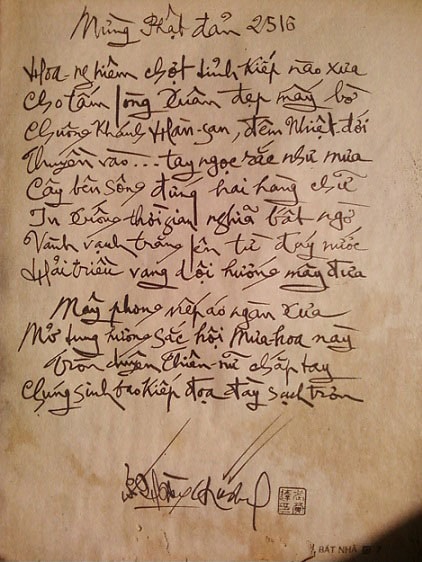 Mừng Phật đản 2516
Hoa-nghiêm chợt tỉnh kiếp nào xưa
Cho tấm lòng Xuân đẹp mấy bờ
Chuông Khánh Hàn-san, đêm Nhiệt-đới
Thuyền vào... tay ngọc rắc như mưa
Cây bên sông đứng hai hàng chữ
In xuống thời gian nghĩa bất ngờ
Vành vạnh trăng lên từ đáy nước
Hải triều vang dội hướng mây đưa
Mây phong nếp áo ngàn xưa
Mở tung hương sắc hội Mưa-hoa này
Tròn duyên Thiên-nữ chắp tay
Chúng sinh bao kiếp đọa đày sạch trơn
BÁT NHÃ